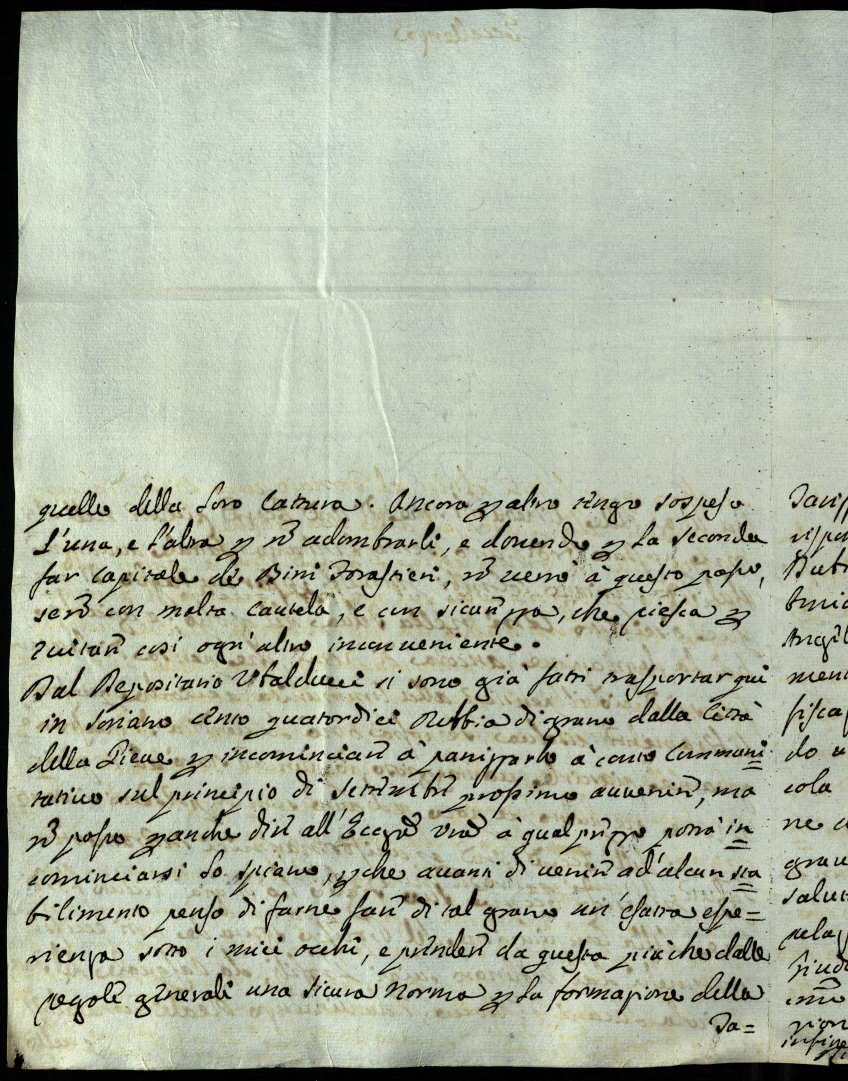 quelle della loro Cattura. Ancora p altro tengo sospeso
l'una, e l'altra p nō adombrarli, e dovendo p la seconda
far capitale di Birri Forastieri, nō verrò à questo passo,
se nō con molta cautela, e con sicurezza, che riesca p
evitare così ogn'altro inconveniente.
Dal Depositario Ubalducci si sono già fatti trasportar qui
in Soriano cento quatordici Rubbia di grano dalla Città
della Pieve p incominciare à panizzarlo à conto Communi=
tativo sul principio di Settembre prossimo avvenire, ma
nō posso p anche dire all' à qual prezzo potrà in=
cominciarsi lo spiano, p che avanti di venire ad alcun sta=
bilimento penso di farne fare di tal grano un'esatta espe=
rienza sotto i miei occhi, e prendere da questa più che dalle
regole generali una sicura norma p la formazione della
Ta=